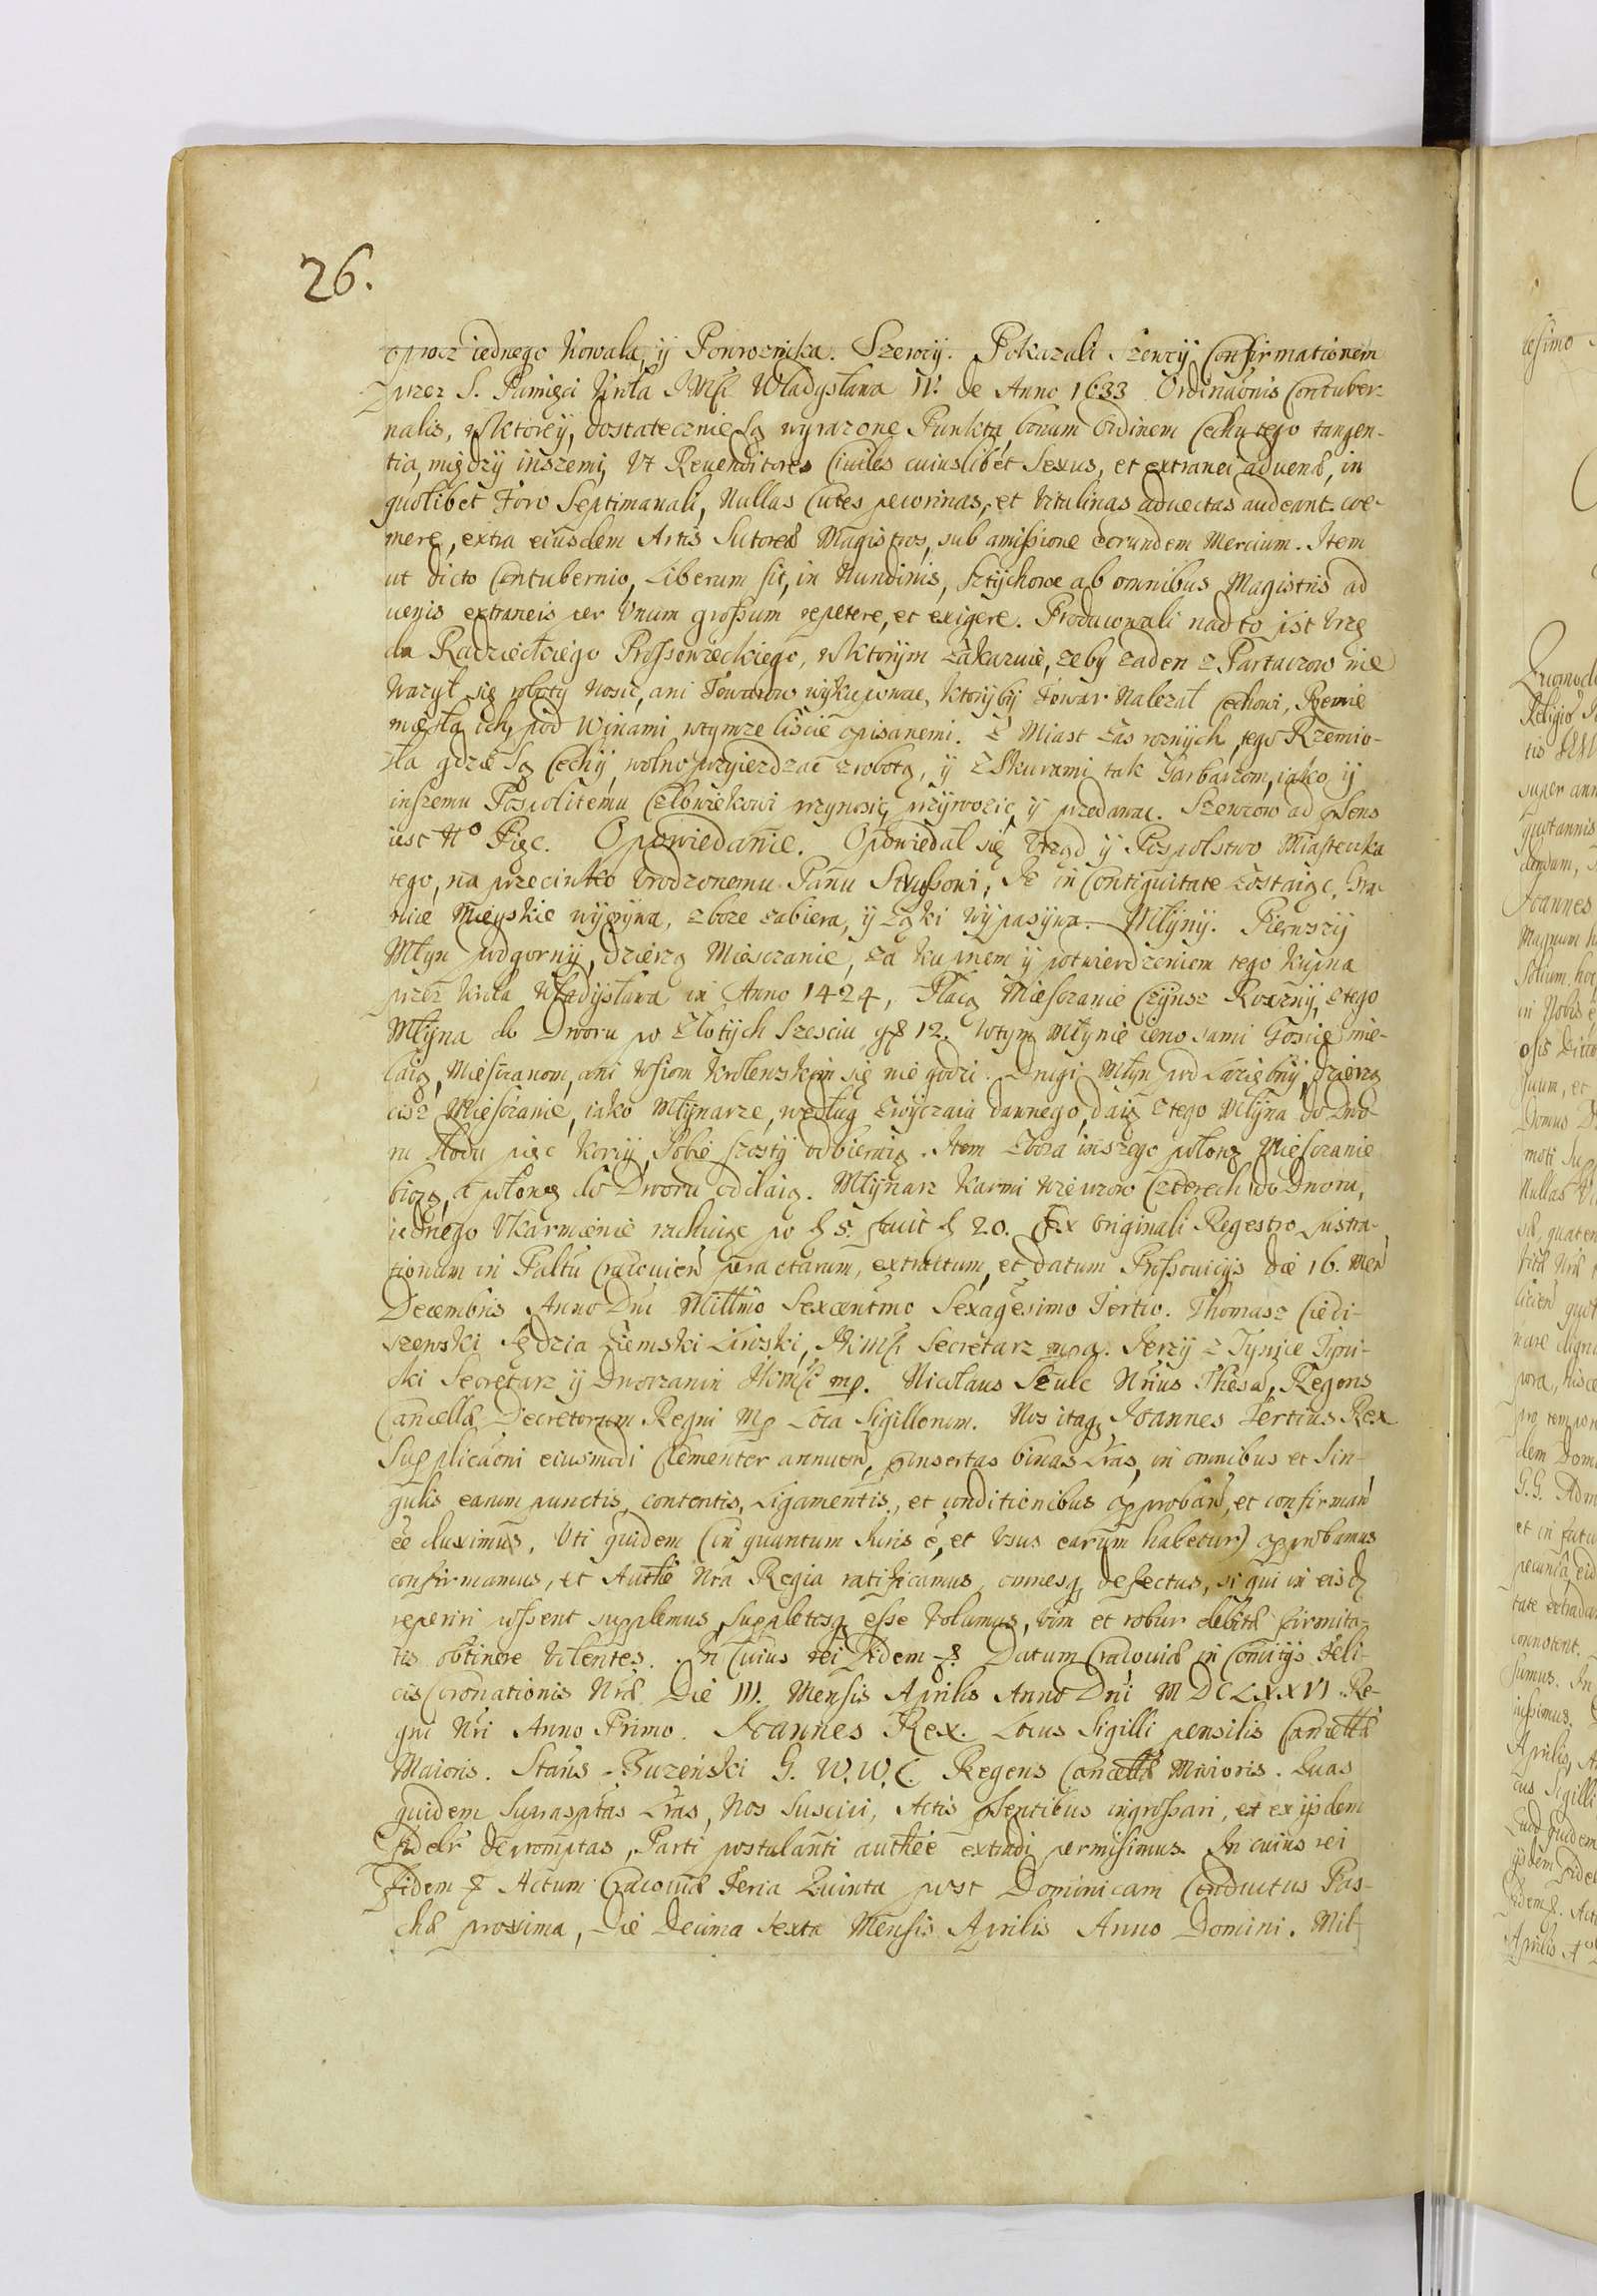 26.
oprocz iednego Kowala, ÿ Powroznika. Szewcÿ. Pokazali Szewcÿ Confirmationem
przez S. Pamięci Krola JMsci Władysława IV. de Anno 1633 Ordinaōnis Contuber-
nalis, wKtorey, dostatecznie są wyrazone Punkta, bonum Ordinem Cechu tego tangen-
tia, międzÿ inszemi, Vt Reuenditores Ciuiles cuiuslibet Sexus, et extranei aduenæ, in
quolibet Foro Septimanali, Nullas Cutes pecorinas, et Vitulinas aduectas audeant coe-
mere, extra eiusdem Artis Sutoreæ Magistros, sub amissione eorundem Mercium. Item
ut dicto Contubernio, Liberum sit, in Nundinis, Sztÿchowe ab omnibus Magistris ad
uenis extraneis per Vnum grossum repetere, et exigere. Producowali nad to list Vrzę
du Radzieckiego Prossowieckiego, wKtorÿm zakazuie, zeby zaden z Partaczow nie
Wazył się roboty nosic, ani Towarow wykupowac, ktorÿbÿ Towar Nalezał Cechowi, Rzemie
mięsła ich, pod Winami wtymze liscie opisanemi. Z Miast zas roznÿch, tego Rzemio-
sła gdzie są Cechÿ, wolno przyiezdzac zrobotą, ÿ z Skurami tak Garbarzom, iako ÿ
inszemu Pospolitemu Człowiekowi przynosic, przÿwozic, ÿ przedawac. Szewcow ad pñens
iest No Pięc. Opowiedanie. Opowiedał się Vrząd ÿ Pospolstwo Miasteczka
tego, na przeciwko Vrodzonemu Panu Strussowi, Ze in Contiguitate zostaiąc, Gra-
nice Mieyskie wyorywa, zboze zabiera, ÿ Łąki wypasÿwa. Młÿnÿ. Pierwszÿ
Młyn podgornÿ, dzierzą Miesczanie, za kupnem ÿ potwierdzeniem tego kupna
przez Krola Władysława in Anno 1424, Płacą Miesczanie Czÿnsz Rocznÿ, z tego
Młÿna do Dworu po Złotÿch Szesciu gr 12. Wtym Młynie ieno sami Goscie mie-
laią, Miesczanom, ani Wsiom Krolewskim się nie godzi. Drugi Młyn pod Łaziebnÿ, dzierzą
cisz Miesczanie, iako Młÿnarze, według Zwyczaiu dawnego, daią z tego Młÿna do Dwo-
ru Słodu pięc korcÿ, Sobie szostÿ odbieraią. Item Zboza inszego połowę Miesczanie
biorą, a połowę do Dworu oddaią. Młÿnarz karmi Wieprzow Czterech do Dworu,
iednego Vkarmienie rachuiąc po f 5. facit f 20. Ex Originali Regestro Lustra-
tionum in Paltu Cracouien peractarum, extractum, et datum Prossouicÿs die 16. Men
Decembris Anno Dni Millmo Sexcentmo Sexagesimo Tertio. Thomasz Ciedi-
szewski Sędzia Ziemski Liwski, JKMsci Secretarz mpa. Jerzÿ z Tynice Tÿni-
cki Secretarz ÿ Dworzanin JKMsci mp. Nicolaus Szulc Nrius Thesa, Regens
Cancellæ Decretorum Regni mp Loca Sigillorum. Nos itaq Joannes Tertius Rex
Supplicaōni eiusmodi Clementer annuen, pinsertas binas Lras, in omnibus et Sin-
gulis earum punctis, contentis, Ligamentis, et conditionibus approban, et confirman
ēē duximus. Vti quidem (in quantum Iuris ē, et Vsus earum habetur) approbamus
confirmamus, et Authē Nra Regia ratificamus, omnesq defectus, si qui in eisd
reperiri possent supplemus, Suppletosq esse Volumus, Vim et robur debitæ firmita-
tis obtinere Volentes. In Cuius rei Fidem &. Datum Cracouiæ in Comitÿs Feli-
cis Coronationis Nræ. Die III. Mensis Aprilis Anno Dni M DC LXXVI Re-
gni Nri Anno Primo. Joannes Rex. Locus Sigilli pensilis Cancellæ
Maioris. Stans Buzenski G. W. W. C. Regens Cancellæ Maioris. Quas
quidem Supraspttas Lras, Nos Suscipi, Actis pñsentibus ingrossari, et ex ijsdem
Fidelr depromptas, Parti postulanti autheē extradi permisimus. In cuius rei
Fidem & Actum Cracouiæ Feria Quinta post Dominicam Conductus Pas-
chæ proxima, Die Decima Sexta Mensis Aprilis Anno Domini. Mil-